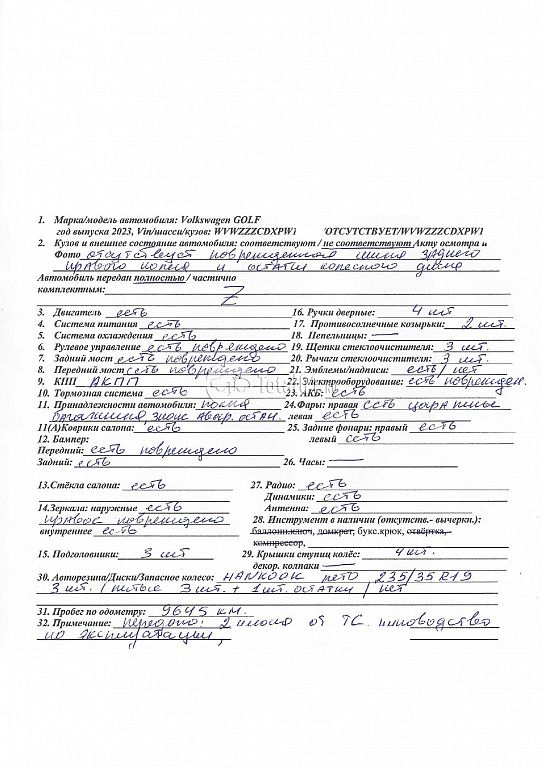 1. Марка/модель автомобиля: Volkswagen GOLF
год выпуска 2023, Vin/шасси/кузов: WVWZZZCDXPW1 'ОТСУТСТВУЕТ/WVWZZZCDXPW1
2. Кузов и внешнее состояние автомобиля: соответствуют / не соответствуют Акту осмотра и
Фото отсутствует поврежденная шина заднего
правого колеса и остатки колесного диска
Автомобиль передан полностью / частично
комплектным: Z
3. Двигатель есть 16. Ручки дверные: 4 шт
4. Система питания есть 17. Противосолнечные козырьки: 2 шт.
5. Система охлаждения есть 18. Пепельницы: —
6. Рулевое управление есть повреждено 19. Щетки стеклоочистителя: 3 шт.
7. Задний мост есть повреждено 20. Рычаги стеклоочистителя: 3 шт.
8. Передний мост есть повреждено 21. Эмблемы/надписи: есть / нет
9. КПП АКПП 22. Электрооборудование: есть поврежден.
10. Тормозная система есть 23. АКБ: есть
11. Принадлежности автомобиля: полка 24. Фары: правая есть царапины
багажника, знак авар. остан. левая есть
11(А) Коврики салона: есть 25. Задние фонари: правый есть
12. Бампер: левый есть
Передний: есть повреждено
Задний: есть 26. Часы: —
13. Стёкла салона: есть 27. Радио: есть
Динамики: есть
14. Зеркала: наружные есть Антенна: есть
правое повреждено 28. Инструмент в наличии (отсутств.- вычеркн.):
внутреннее есть баллонн.ключ, домкрат, букс.крюк, отвёртка,
компрессор,
15. Подголовники: 3 шт 29. Крышки ступиц колёс: 4 шт.
декор. колпаки —
30. Авторезина/Диски/Запасное колесо: HANKOOK лето 235/35 R19
3 шт. / литые 3 шт. + 1 шт. остатки / нет
31. Пробег по одометру: 9645 км.
32. Примечание: передано: 2 ключа от ТС. руководство
по эксплуатации,